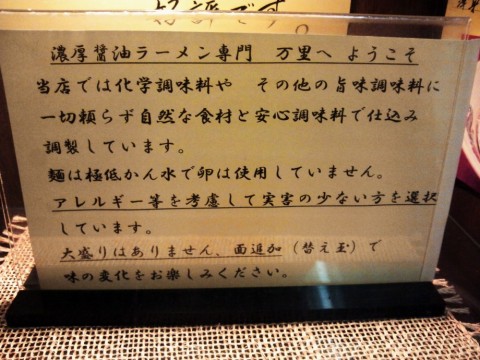 好評です。
濃厚醤油ラーメン専門　万里へ ようこそ
当店では化学調味料や　その他の旨味調味料に
一切頼らず自然な食材と安心調味料で仕込み
調製しています。
麺は極低かん水で卵は使用していません。
アレルギー等を考慮して実害の少ない方を選択
しています。
大盛りはありません、面追加（替え玉）で
味の変化をお楽しみください。